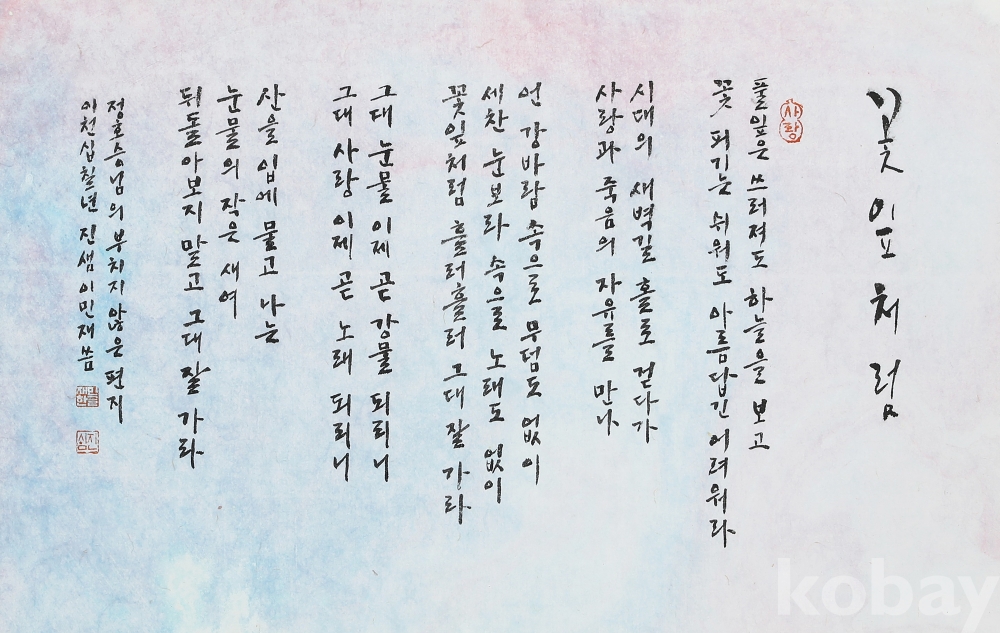 꽃잎처럼
사랑
풀잎은 쓰러져도 하늘을 보고
꽃 피기는 쉬워도 아름답긴 어려워라
시대의 새벽길 홀로 걷다가
사랑과 죽음의 자유를 만나
언 강바람 속으로 무덤도 없이
세찬 눈보라 속으로 노래도 없이
꽃잎처럼 흘러흘러 그대 잘 가라
그대 눈물 이제 곧 강물 되리니
그대 사랑 이제 곧 노래 되리니
산을 입에 물고 나는
눈물의 작은 새여
뒤돌아보지 말고 그대 잘 가라
정호승님의 부치지 않은 편지
이천십칠년 진샘이민재 씀
kobay